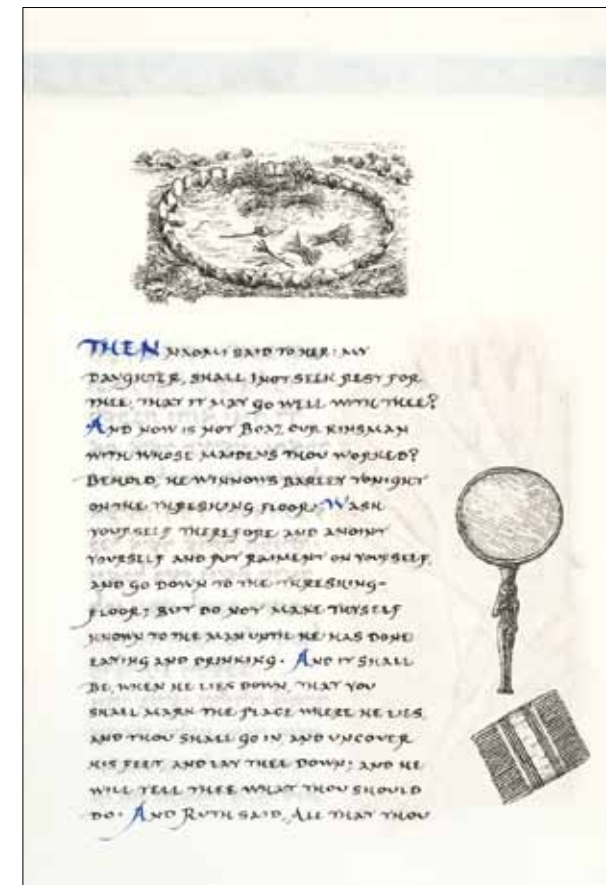 THEN NAOMI SAID TO HER: MY
DAUGHTER, SHALL I NOT SEEK REST FOR
THEE, THAT IT MAY GO WELL WITH THEE?
AND NOW IS NOT BOAZ OUR KINSMAN
WITH WHOSE MAIDENS THOU WORKED?
BEHOLD, HE WINNOWS BARLEY TONIGHT
ON THE THRESHING FLOOR. WASH
YOURSELF THEREFORE AND ANOINT
YOURSELF AND PUT RAIMENT ON YOURSELF,
AND GO DOWN TO THE THRESHING-
FLOOR; BUT DO NOT MAKE THYSELF
KNOWN TO THE MAN UNTIL HE HAS DONE
EATING AND DRINKING. AND IT SHALL
BE, WHEN HE LIES DOWN, THAT YOU
SHALL MARK THE PLACE WHERE HE LIES,
AND THOU SHALL GO IN AND UNCOVER
HIS FEET AND LAY THEE DOWN; AND HE
WILL TELL THEE WHAT THOU SHOULD
DO. AND RUTH SAID, ALL THAT THOU